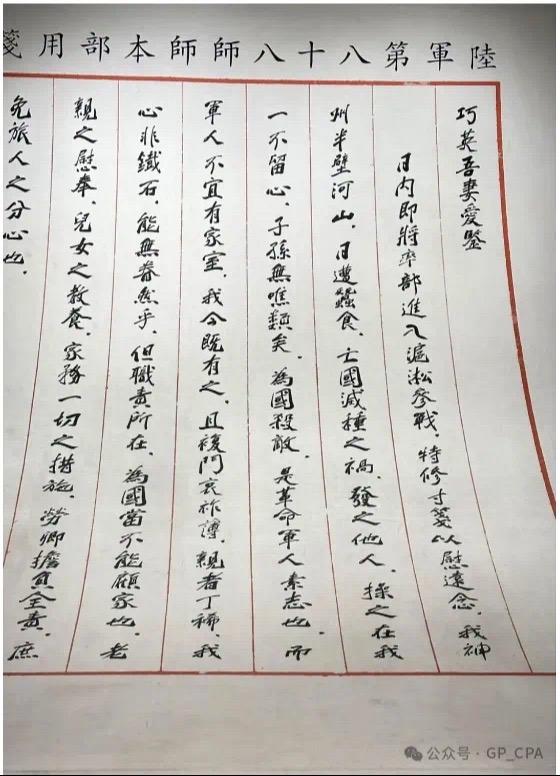 陸軍第八十八師師本部用箋
巧英吾妻愛鑒
日内即將率部進入滬淞參戰，特修寸箋以慰遠念。我神
州半壁河山，日遭蠶食，亡國滅種之禍，發之他人，操之在我，
一不留心，子孫無噍類矣。為國殺敵，是革命軍人素志也，而
軍人不宜有家室，我今既有之，且複門衰祚薄，親者丁稀，我
心非鐵石，能無眷然乎，但職責所在，為國當不能顧家也，老
親之慰奉，兒女之教養，家務一切之措施，勞卿擔負全責，庶
免旅人之分心也，
公众号·GP_CPA